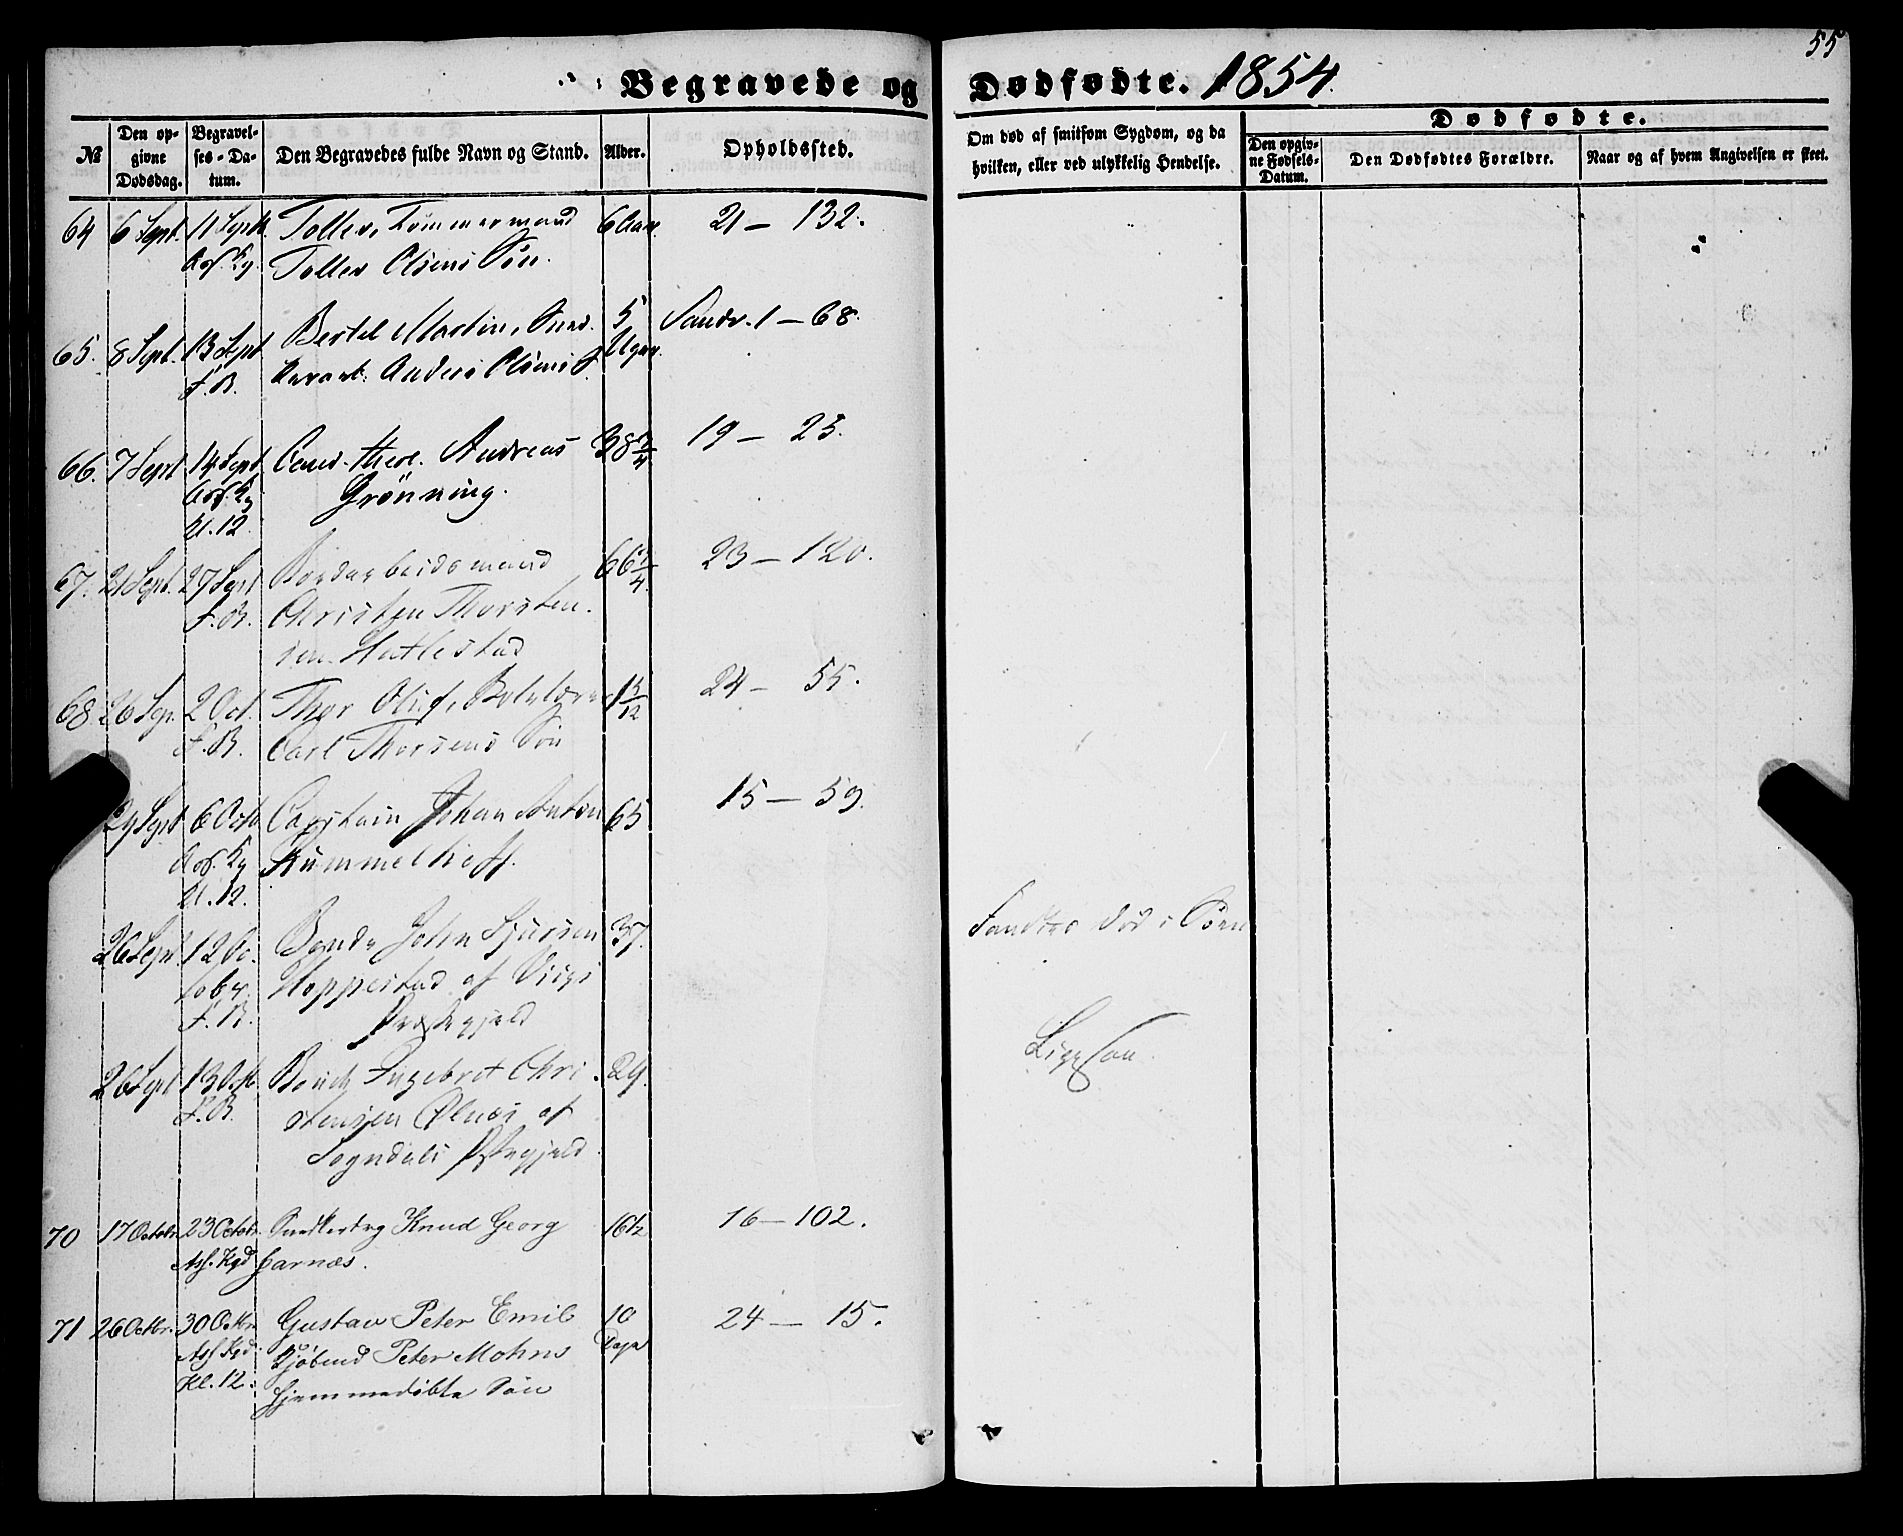 55
Begravede og Dødfødte. 1854.
№
Den opgivne Dødsdag.
Begravelses-Datum.
Den Begravedes fulde Navn og Stand.
Alder.
Opholdssted.
Om død af smitsom Sygdom, og da hvilken, eller ved ulykkelig Hendelse.
Dødfødte.
Den opgivne Fødsels-Datum.
Den Dødfødtes Forældre.
Naar og af hvem Angivelsen er skeet.
64 6 Sept. 11 Septb. Tollev, Tømmermand 6 Aar. 21 — 132.
Tollev Olsens Søn.
65. 8 Sept. 13 Sept Bertel Martin, 5 Uger. Sandv. 1 — 68.
F.B. Anders Olsens S.
66. 7 Sept 14 Sept Cand. theol. Andreas 38 3/4 19 — 25.
Grønning.
Kl. 12
67. 21 Sept. 27 Sept Bordarbeidsmand 66 3/4 23 — 120.
F.B. Christen Thorsten-
sen Hatlestad
68 26 Sep. 2 Oct. Thor Oluf, 1 5/12 24 — 55.
F.B. Carl Thorsens Søn
29 Sept 6 Octb Capitain Johan Anton 65 15 — 59.
Kummelhoff.
Kl. 12.
26 Sept. 12 Oc- Bonde John Sjursen 37. Fandtes død i Søen
tobr. Hoppestad af Viigs
F.B. Præstegjeld
Ligesaa.
26 Sept 13 Octb. Bonde Ingebret Chri- 29.
F.B. stensen Ølnes af
Sogndals Præstegjeld
70 17 Octobr. 23 Octobr. Snedkerdrg Knud Georg 16 1/2 16 — 102.
Ass. Kgd Garnæs.
71 26 Octbr. 30 Octbr. Gustav Peter Emil 10 Dage 24 — 15.
Ass. Kgd. Kjøbmd Peter Mohns
Kl. 12. hjemmedøbte Søn